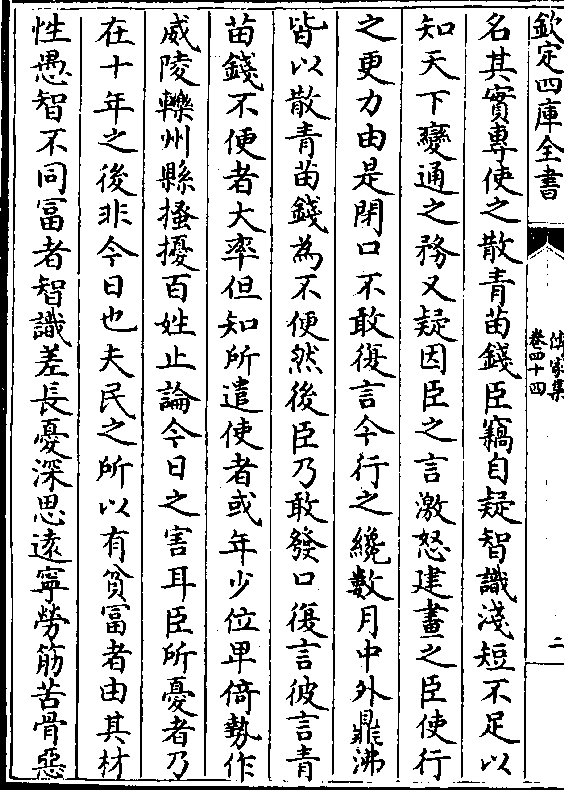 欽定四庫全書
傳家集
卷四十四
二
名其實專使之散青苗錢臣竊自疑智識淺短不足以
知天下變通之務又疑因臣之言激怒建畫之臣使行
之更力由是閉口不敢復言今行之纔數月中外鼎沸
皆以散青苗錢為不便然後臣乃敢發口復言彼言青
苗錢不便者大率但知所遣使者或年少位卑倚勢作
威陵轢州縣搔擾百姓止論今日之害耳臣所憂者乃
在十年之後非今日也夫民之所以有貧冨者由其材
性愚智不同冨者智識差長憂深思遠寧勞筋苦骨惡